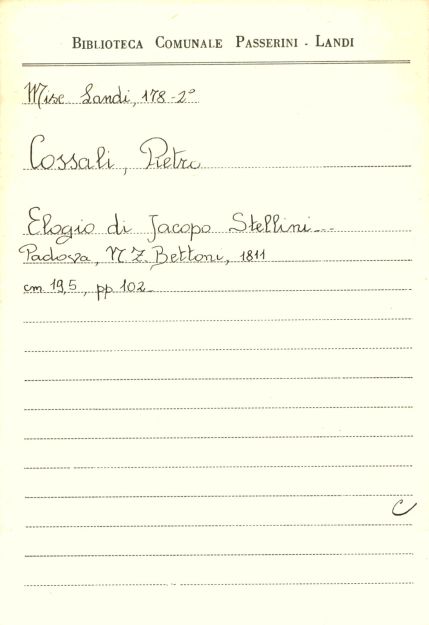 BIBLIOTECA COMUNALE PASSERINI - LANDI
Misc Landi, 178-2°
Cossali, Pietro
Elogio di Jacopo Stellini...
Padova, N Z. Bettoni, 1811
cm 19,5, pp 102
C